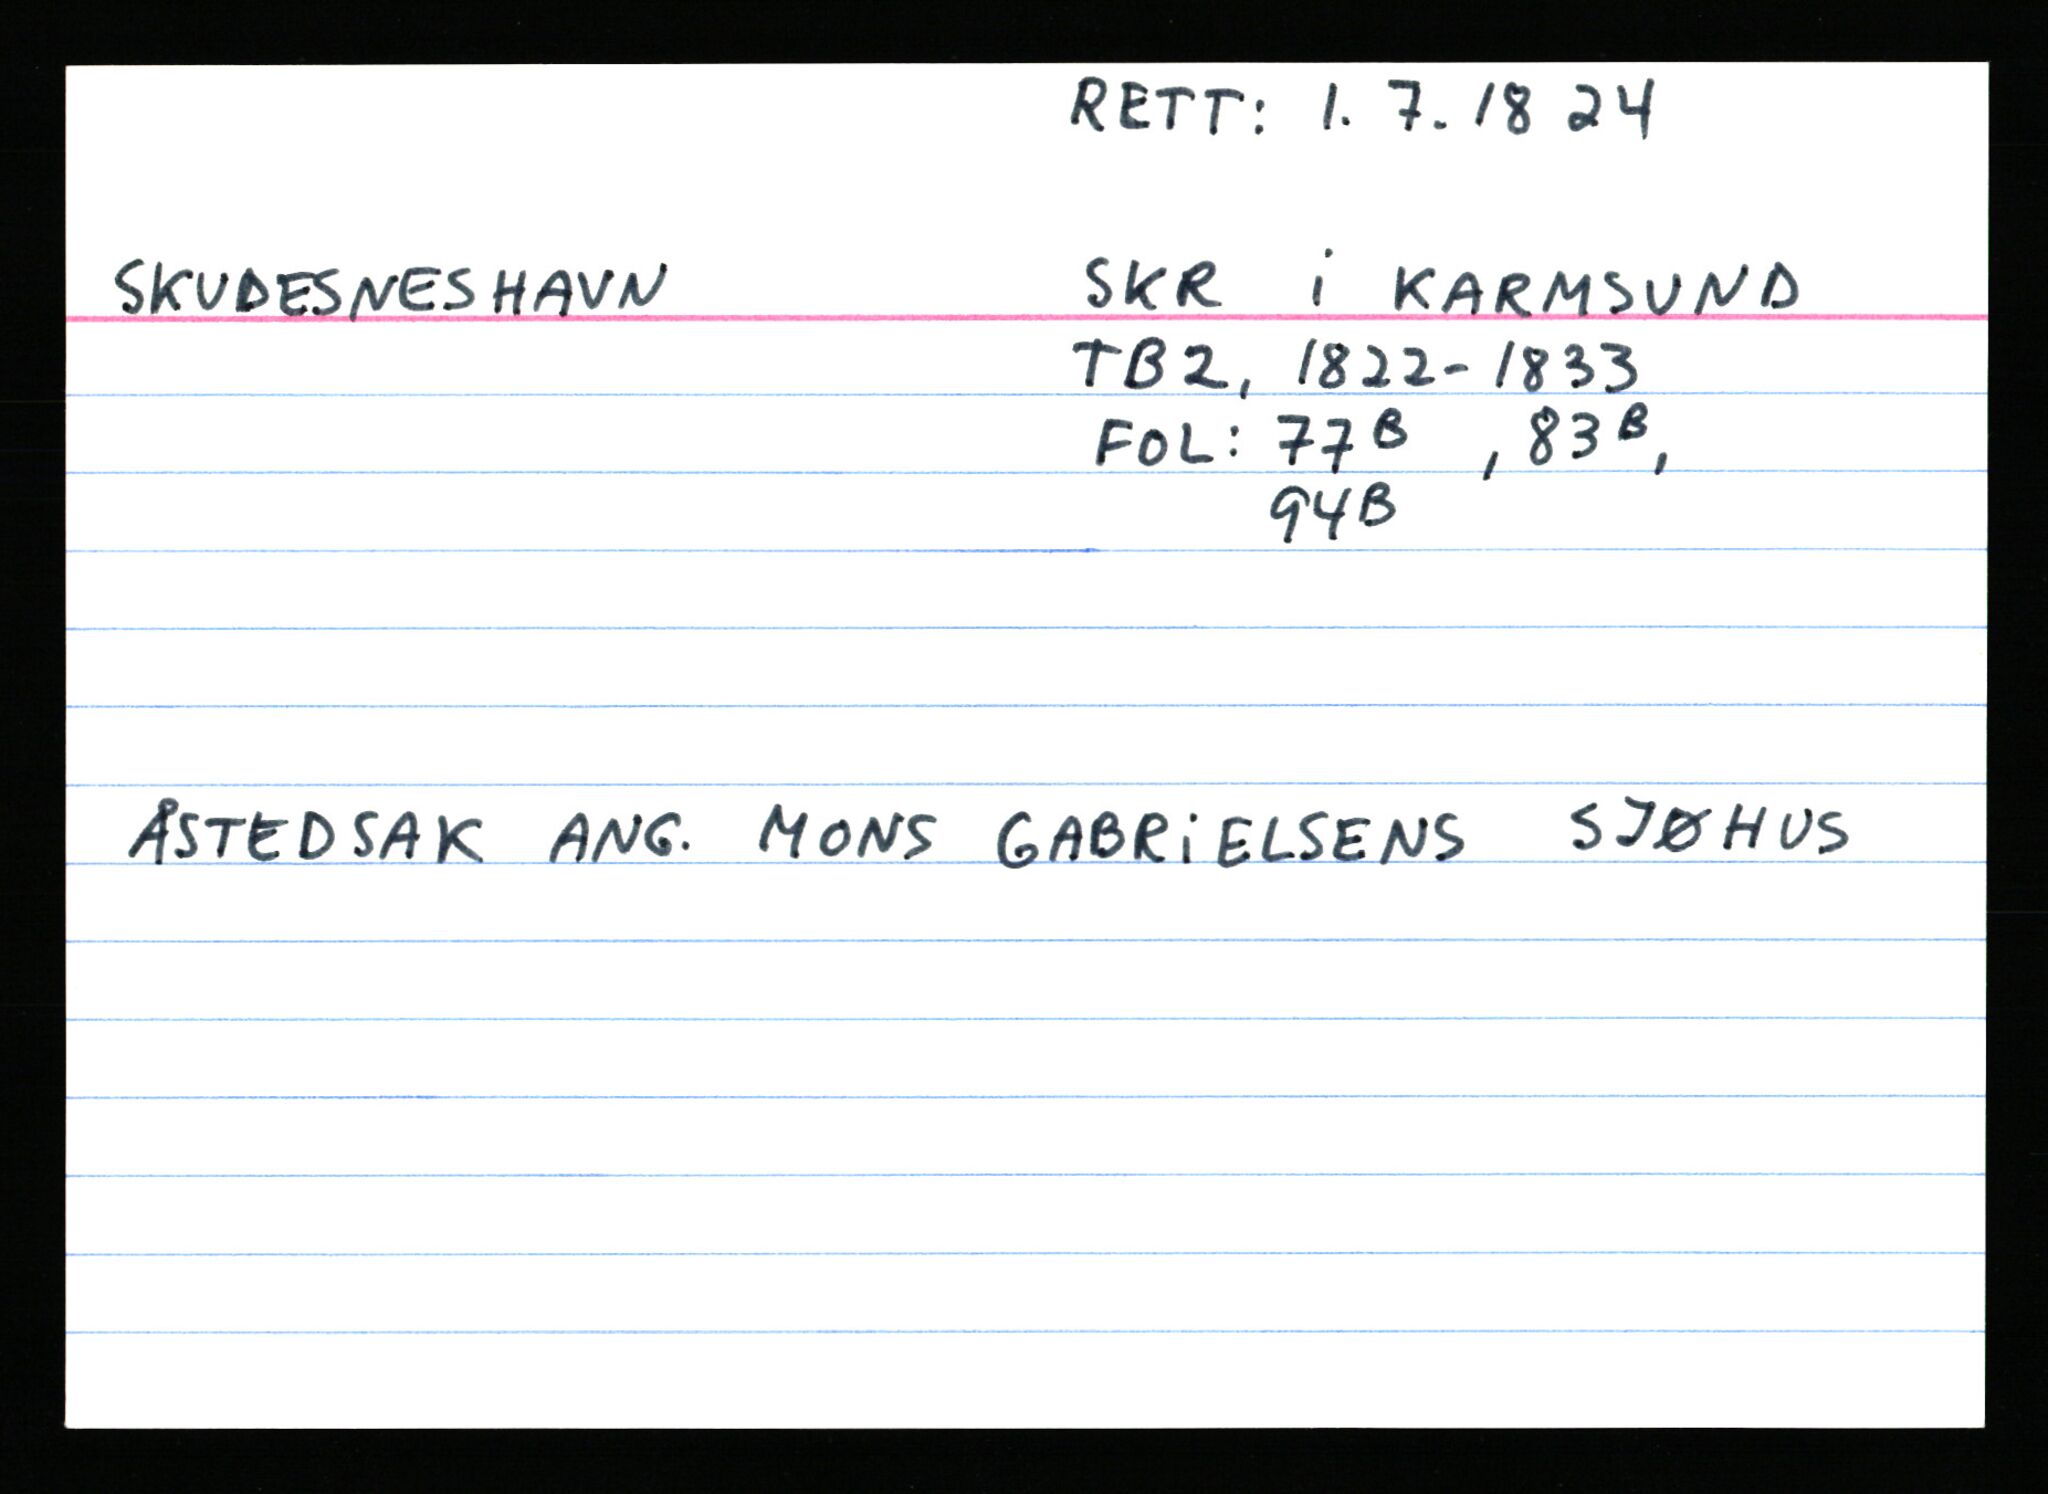 RETT: 1. 7. 18 24
SKUDESNESHAVN SKR i KARMSUND
TB 2, 1822-1833
FOL: 77B , 83B,
94B
ÅSTEDSAK ANG. MONS GABRiELSENS SJØHUS